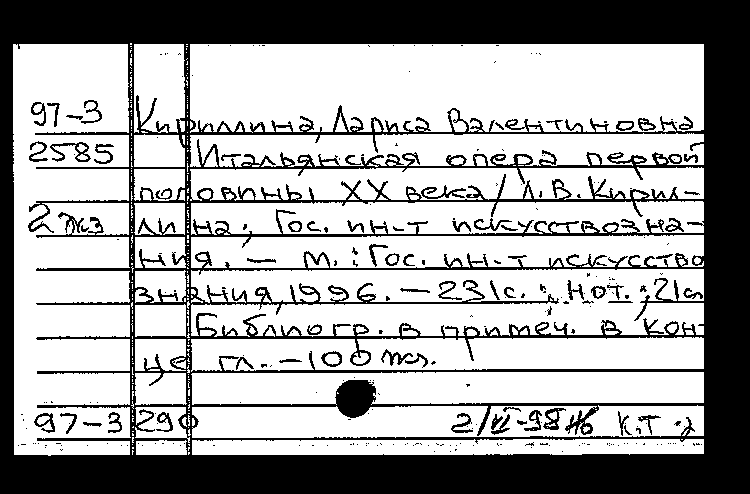 97-3 Кириллина, Лариса Валентиновна.
2585 Итальянская опера первой
половины XX века / Л.В. Кирил-
2 экз лина; Гос. ин-т искусствозна-
ния. — М.: Гос. ин-т искусство
знания, 1996. — 231с. : нот. ; 21см
Библиогр. в примеч. в кон-
це гл. — 100 экз.
97-3 290 2/VI-98 К.Т